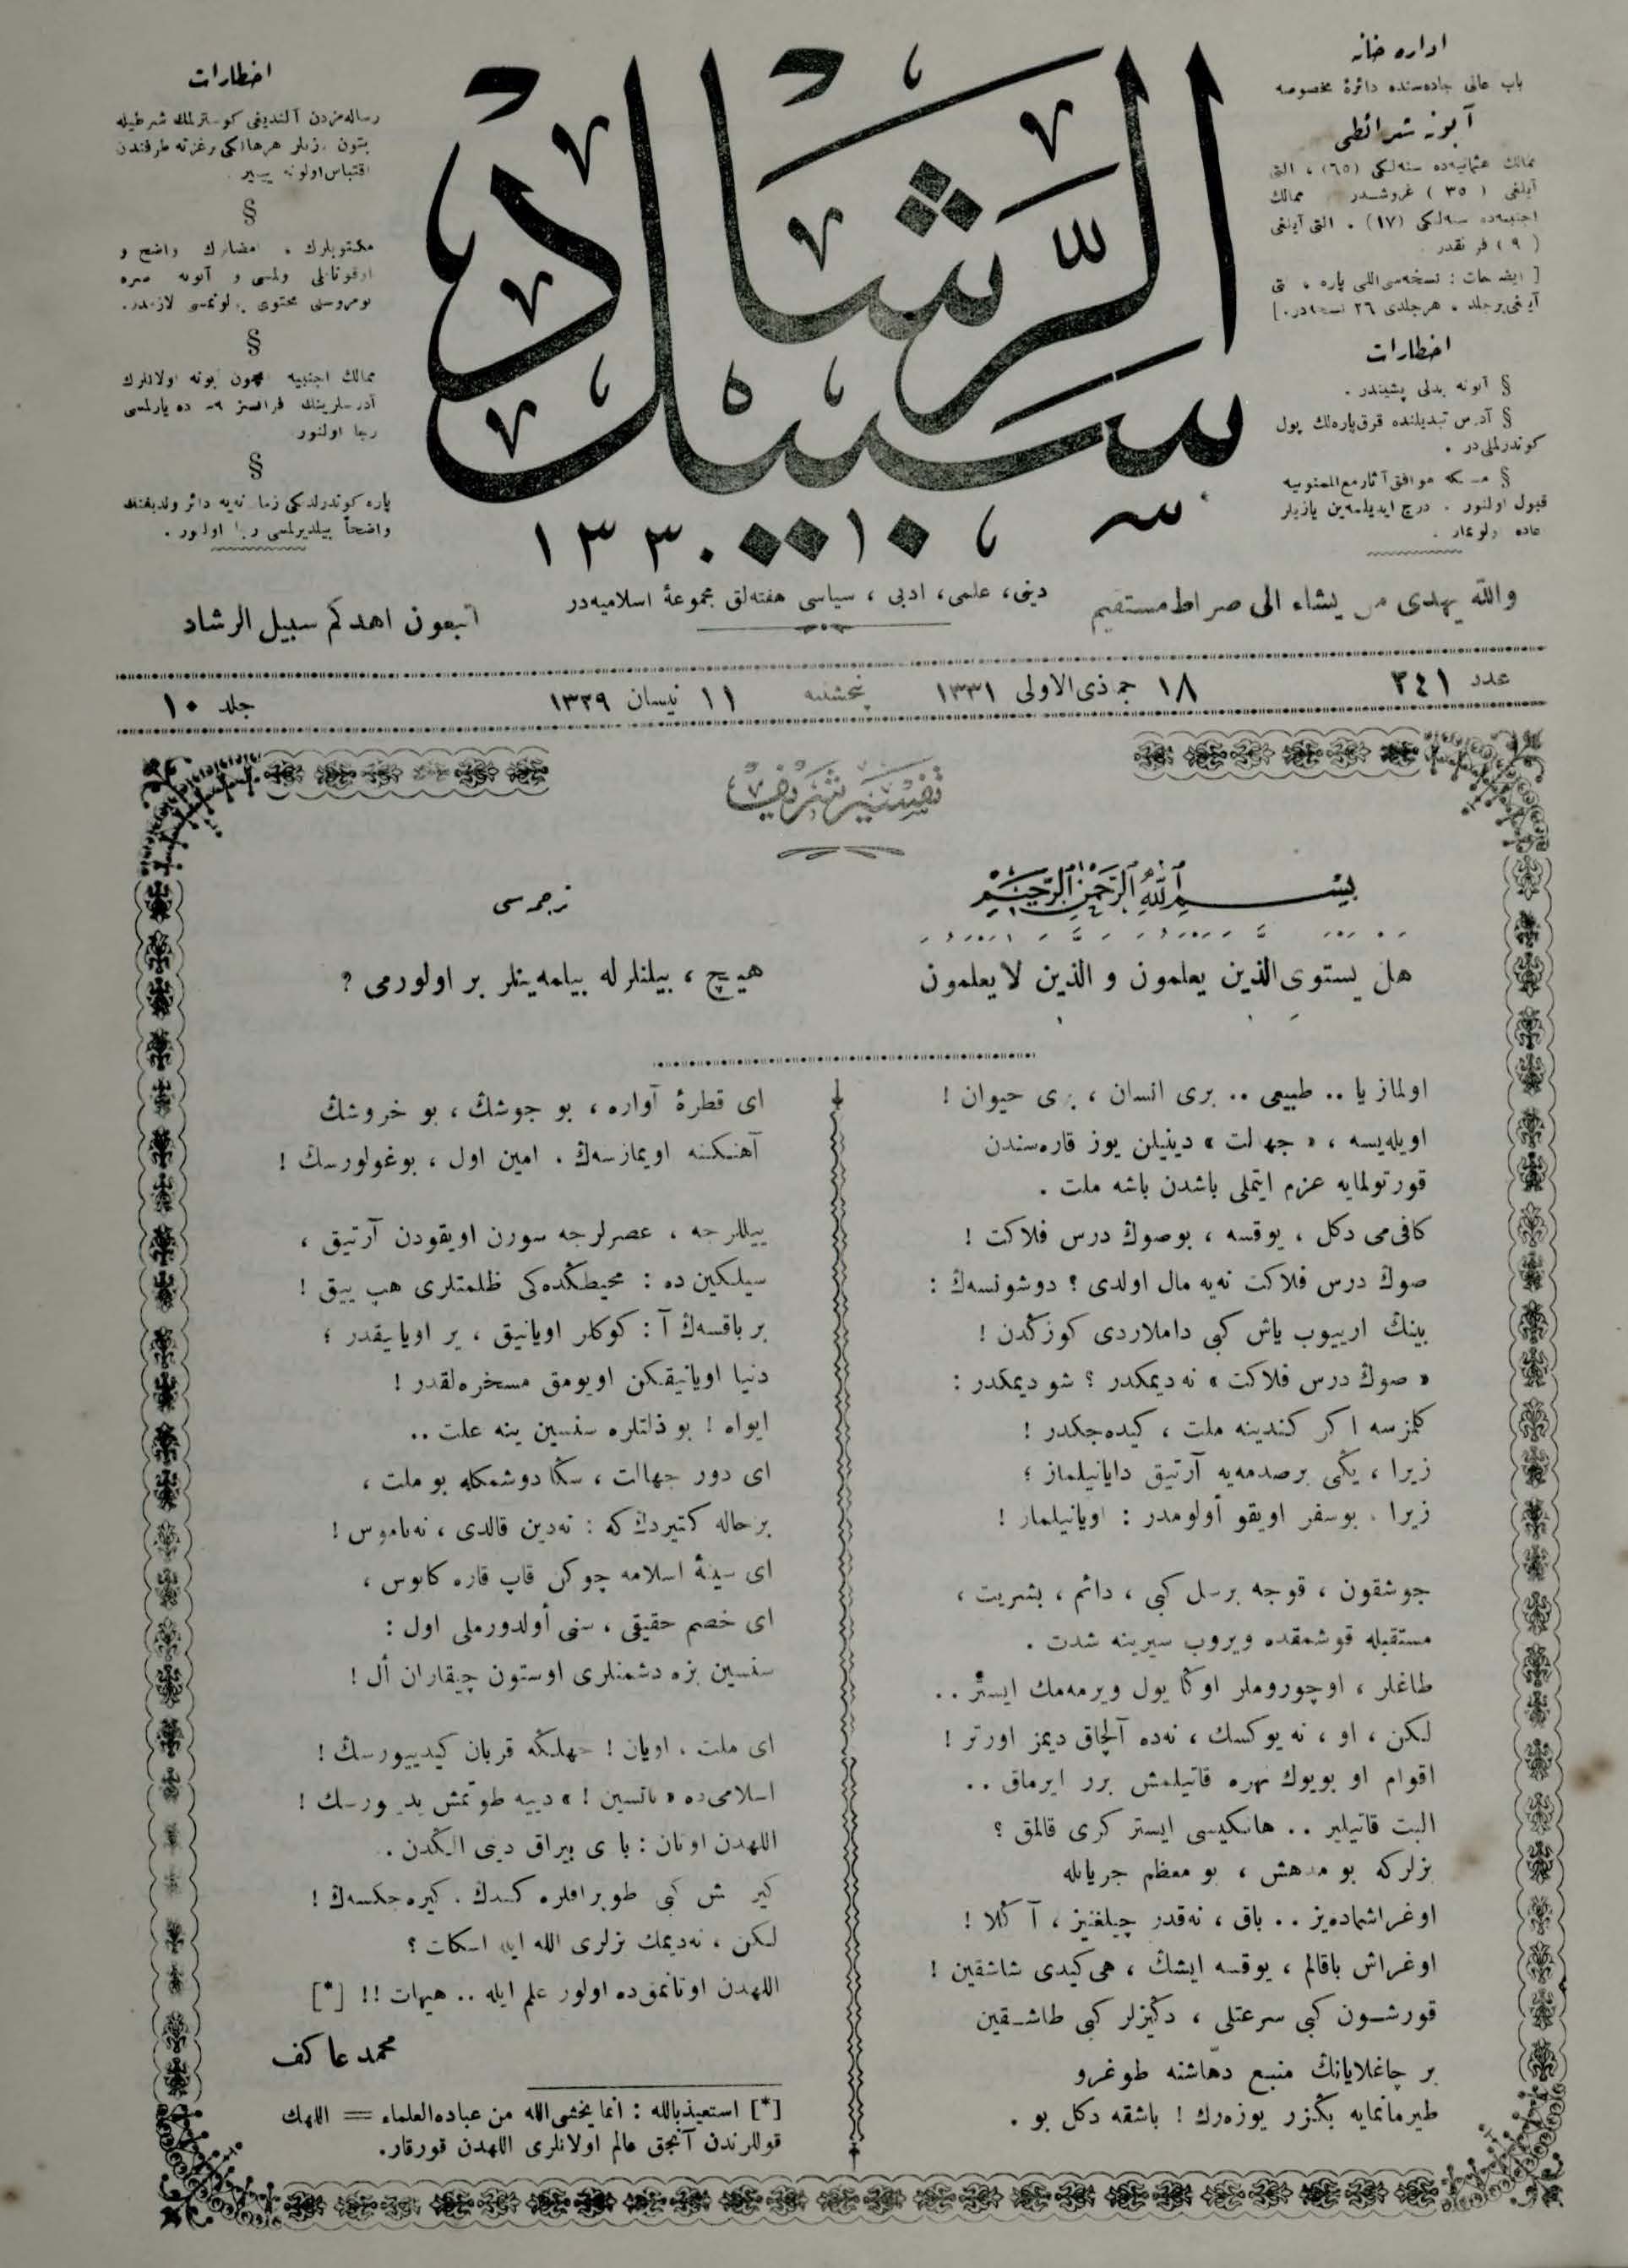 اداره خانه
باب عالی جاده‌سنده دائرهٔ مخصوصه
آبونه شرائطی
ممالك عثمانیه‌ده سنه‌لكی (٦٥) ، التی
آیلغی ( ٣٥ ) غروشدر ممالك
اجنبیه‌ده سنه‌لكی (١٧) . التی آیلغی
( ٩ ) فرنقدر
اخطارات
§ آبونه بدلی پشیندر .
§ آدرس تبدیلنده قرق پاره‌لك پول
كوندرلملی‌در .
§ مسلكه موافق آثار مع الممنونیه
قبول اولنور . درج ایدیلمه‌ین یازیلر
اخطارات
رساله‌مزدن آلندیغی كوسترلمك شرطیله
§
§
ممالك اجنبیه ایچون آبونه اولانلرك
رجا اولنور
§
واضحاً بیلدیرلمسی رجا اولنور .
سبیل الرشاد
١٣٣٠
دینی، علمی، ادبی ، سیاسی هفته‌لق مجموعهٔ اسلامیه‌در
والله یهدی من یشاء الی صراط مستقیم
اتبعون اهدكم سبیل الرشاد
عدد ٢٤١
١٨ جماذی‌الاولی ١٣٣١
پنجشنبه
١١ نیسان ١٣٢٩
جلد ١٠
تفسیر شریف
بسم الله الرحمن الرحیم
هل یستوی الذین یعلمون و الذین لا یعلمون
ترجمه‌سی
هیچ ، بیلنلر له بیلمه‌ینلر بر اولورمی ?
اولماز یا .. طبیعی .. بری انسان ، بری حیوان !
اویله‌یسه ، « جهالت » دینیلن یوز قاره‌سندن
قورتولمایه عزم ایتملی باشدن باشه ملت .
كافی‌می دكل ، یوقسه ، بو صوڭ درس فلاكت !
صوڭ درس فلاكت نه‌یه مال اولدی ؟ دوشونسه‌ڭ :
بینڭ ارییوب یاش كبی داملاردی كوزكدن !
« صوڭ درس فلاكت » نه دیمكدر ؟ شو دیمكدر :
كلمزسه اكر كندینه ملت ، كیده‌جكدر !
زیرا ، یڭی بر صدمه‌یه آرتیق دایانیلماز ؛
زیرا ، بو سفر اویقو أولومدر : اویانیلماز !
جوشقون ، قوجه بر سل كبی ، دائم ، بشریت ،
مستقبله قوشمقده ویروب سیرینه شدت .
طاغلر ، اوچوروملر اوڭا یول ویرمه‌مك ایستر ..
لكن ، او ، نه یوكسك ، نه‌ده آلچاق دیمز اورتر !
اقوام او بویوك نهره قاتیلمش برر ایرماق ..
البت قاتیلیر .. هانكیسی ایستر كری قالمق ؟
بزلركه بو مدهش ، بو معظم جریانله
اوغراشماده‌یز .. باق ، نه‌قدر چیلغنیز ، آڭلا !
اوغراش باقالم ، یوقسه ایشڭ ، هی كیدی شاشقین !
قورشون كبی سرعتلی ، دڭیزلر كبی طاشقین
بر چاغلایانڭ منبع دهّاشنه طوغرو
طیرمانمایه بكزر یوزه‌رك ! باشقه دكل بو .
ای قطرهٔ آواره ، بو جوشڭ ، بو خروشڭ
آهنكنه اویمازسه‌ڭ . امین اول ، بوغولورسڭ !
ییللرجه ، عصرلرجه سورن اویقودن آرتیق ،
سیلكین ده : محیطڭده‌كی ظلمتلری هپ ییق !
بر باقسه‌ڭ آ : كوكلر اویانیق ، یر اویانیقدر ؛
دنیا اویانیقكن اویومق مسخره‌لقدر !
ایواه ! بو ذلتلره سنسین ینه علت ..
ای دور جهالت ، سڭا دوشمكله بو ملت ،
بر حاله كتیردڭ كه : نه‌دین قالدی ، نه‌ناموس !
ای سینهٔ اسلامه چوكن قاپ قاره كابوس ،
ای خصم حقیقی ، سنی أولدورملی اول :
سنسین بزه دشمنلری اوستون چیقاران أل !
ای ملت ، اویان ! جهلكه قربان كیدییورسڭ !
اسلامی‌ده « باتسین ! » دییه طوتمش یدییورسڭ !
اللهدن اوتان : باری بیراق دینی الڭدن .
كیر لش كبی طوپراقلره كندڭ . كیره‌جكسه‌ڭ !
لكن ، نه‌دیمك بزلری الله ایله اسكات ؟
اللهدن اوتانمق‌ده اولور علم ایله .. هیهات !! [*]
محمد عاكف
[*] استعیذ بالله : انما یخشی الله من عباده العلماء = اللهك
قوللرندن آنجق عالم اولانلری اللهدن قورقار.